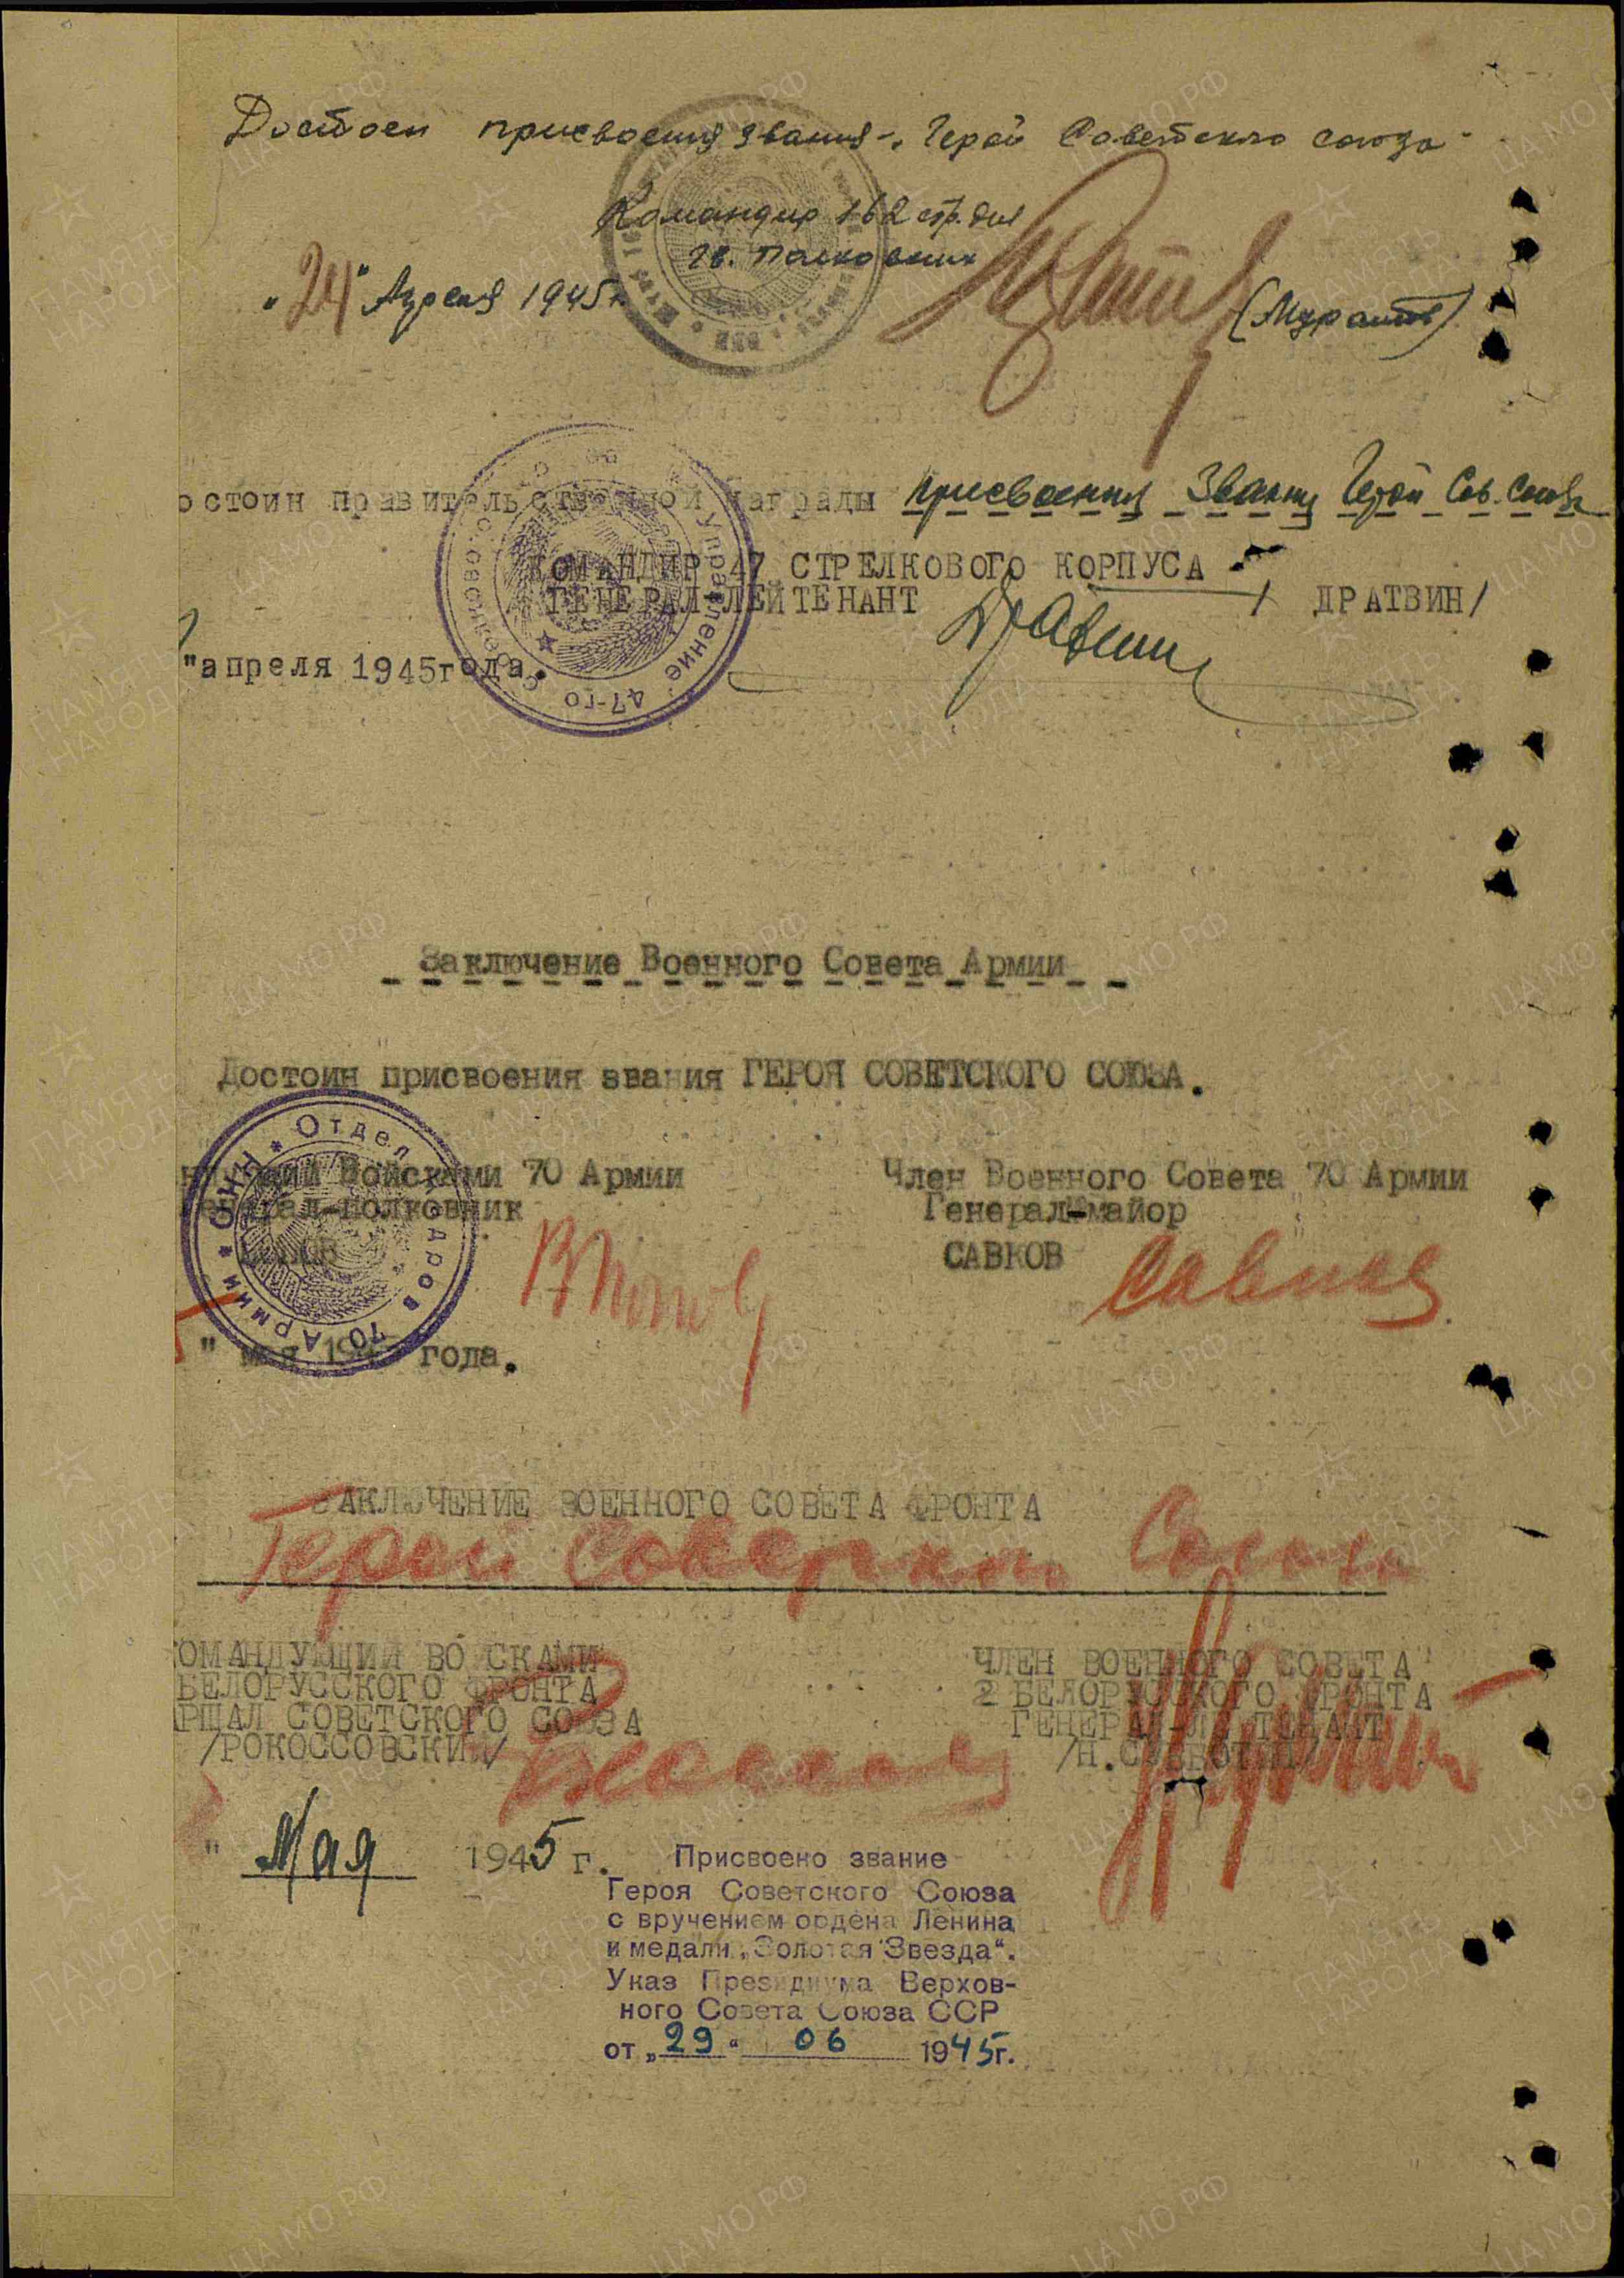 Достоен присвоения звания - "Герой Советского союза"
Командир 162 стр. див
гв. полковник
"24" Апреля 1945 г. (Муратов)
остоин правительственной награды присвоения Звания Герой Сов. Союза
КОМАНДИР 47 СТРЕЛКОВОГО КОРПУСА
ГЕНЕРАЛ-ЛЕЙТЕНАНТ / ДРАТВИН/
"апреля 1945года.
Управление 47-го Стрелкового
Заключение Военного Совета Армии
Достоин присвоения звания ГЕРОЯ СОВЕТСКОГО СОЮЗА.
Войсками 70 Армии
Генерал-полковник
Член Военного Совета 70 Армии
Генерал-майор
САВКОВ
" мая 1945 года.
* Отдел кадров 70 Армии *
ЗАКЛЮЧЕНИЕ ВОЕННОГО СОВЕТА ФРОНТА
Герой Советского Союза
ОМАНДУЮЩИЙ ВО СКАМИ
БЕЛОРУССКОГО ФРОНТА
АРШАЛ СОВЕТСКОГО СОЮЗА
/РОКОССОВСКИЙ/
ЧЛЕН ВОЕННОГО СОВЕТА
2 БЕЛОРУССКОГО ФРОНТА
ГЕНЕРАЛ-ЛЕ ТЕНАНТ
/Н.СУББОТИН/
" Мая 1945 г.
Присвоено звание
Героя Советского Союза
с вручением ордена Ленина
и медали „Золотая Звезда“.
Указ Президиума Верхов-
ного Совета Союза ССР
от „29“ 06 1945г.
ПАМЯТЬ НАРОДА
ЦА МО РФ